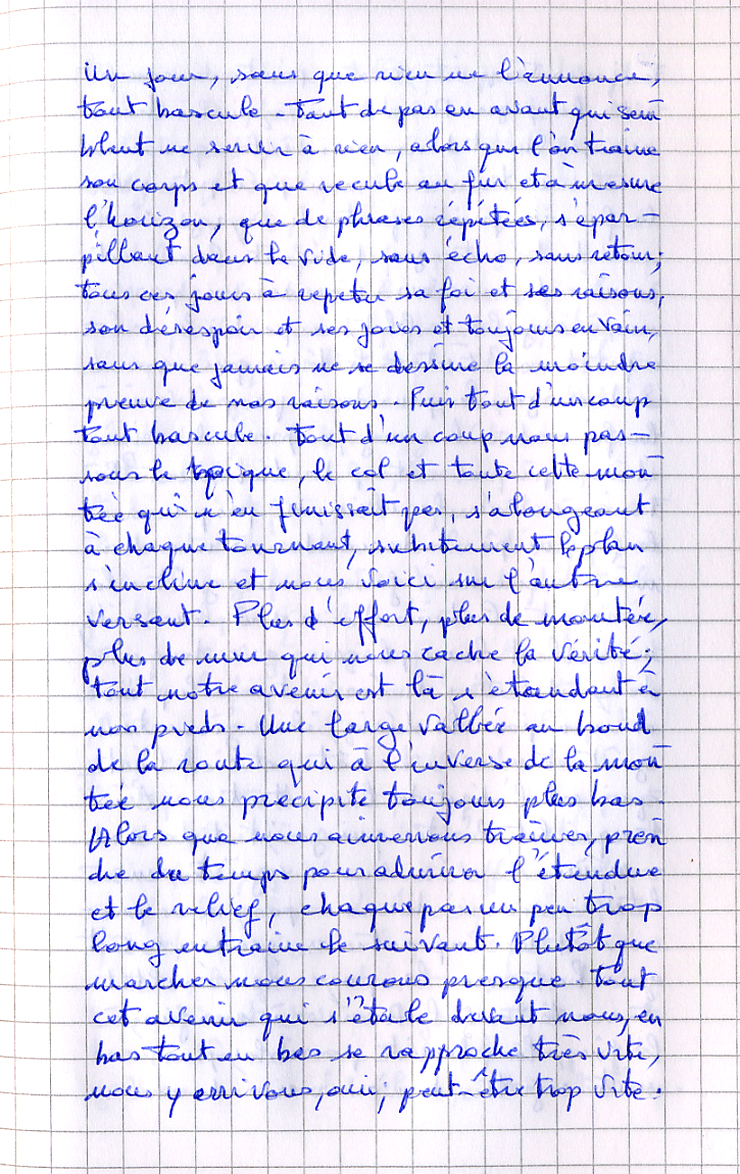 Un jour, sans que rien ne l'annonce,
tout bascule. Tant de pas en avant qui sem
blent ne servir à rien, alors que l'on traine
son corps et que recule au fur et à mesure
l'horizon, que de phrases répétées, s'épar-
pillant dans le vide, sans écho, sans retour;
tous ces jours à repeter sa foi et ses raisons,
son désespoir et ses joies et toujours en vain,
sans que jamais ne se dessine la moindre
preuve de nos raisons. Puis tout d'un coup
tout bascule. Tout d'un coup nous pas-
sons le, le col et toute cette mon
tée qui n'en finissait pas, s'alongeant
à chaque tournant, subitement le plan
s'incline et nous voici sur l'autre
versant. Plus d'effort, plus de montée,
plus de mur qui nous cache la vérité;
tout notre avenir est là s'étandant à
nos pieds. Une large vallée au bout
de la route qui à l'inverse de la mon
tée nous précipite toujours plus bas.
Alors que nous aimerions trainer, pren
dre du temps pour admirer l'étendue
et le relief, chaque pas un peu trop
long entraine le suivant. Plutôt que
marcher nous courons presque. Tout
cet avenir qui s'étale devant nous, en
bas tout en bas se rapproche très vite,
nous y arrivons, oui; peut-être trop vite.